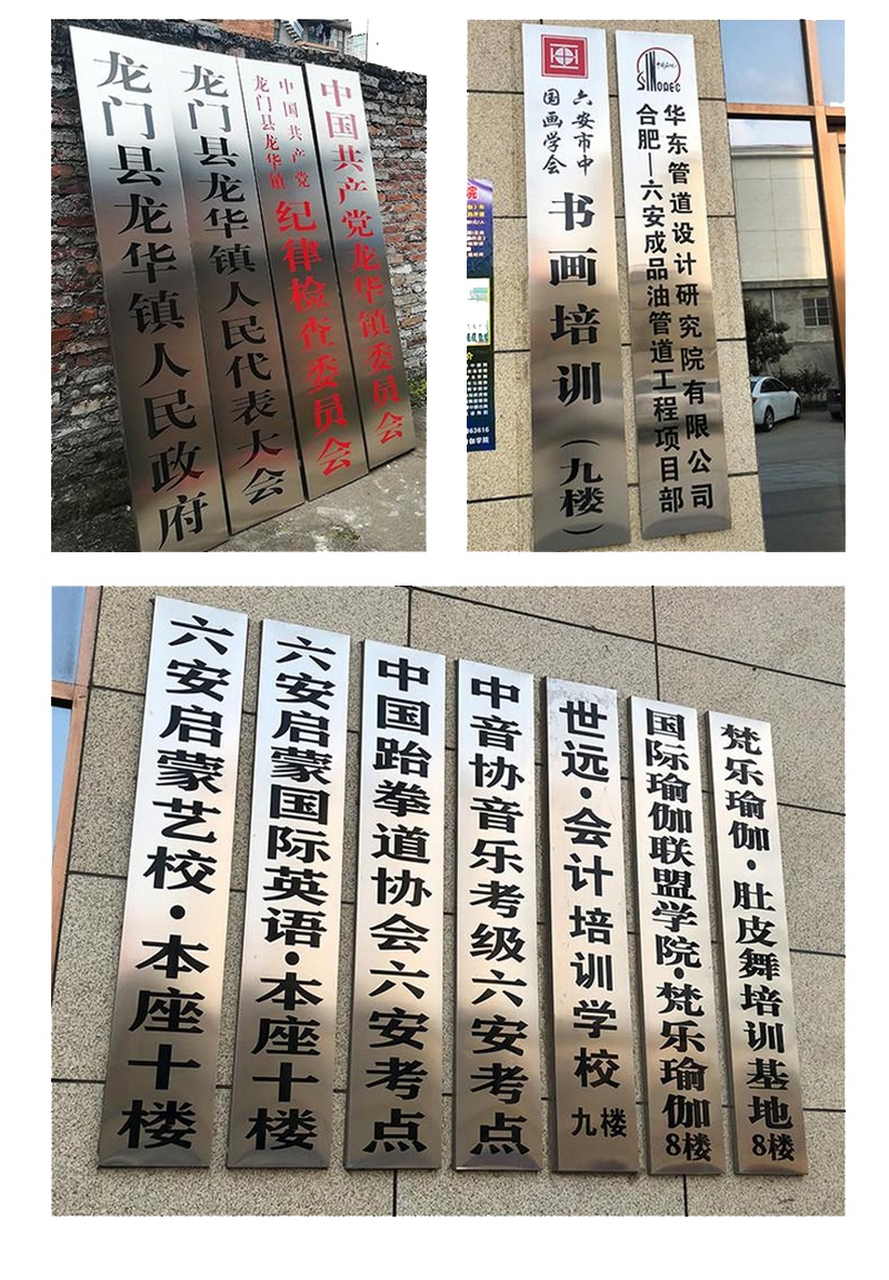 龙门县龙华镇人民政府
龙门县龙华镇人民代表大会
中国共产党
龙门县龙华镇
纪律检查委员会
中国共产党龙华镇委员会
六安市中
国画学会
书画培训（九楼）
SINOPEC
华东管道设计研究院有限公司
合肥—六安成品油管道工程项目部
六安启蒙艺校·本座十楼
六安启蒙国际英语·本座十楼
中国跆拳道协会六安考点
中音协音乐考级六安考点
世远·会计培训学校
九楼
国际瑜伽联盟学院·梵乐瑜伽
8楼
梵乐瑜伽·肚皮舞培训基地
8楼